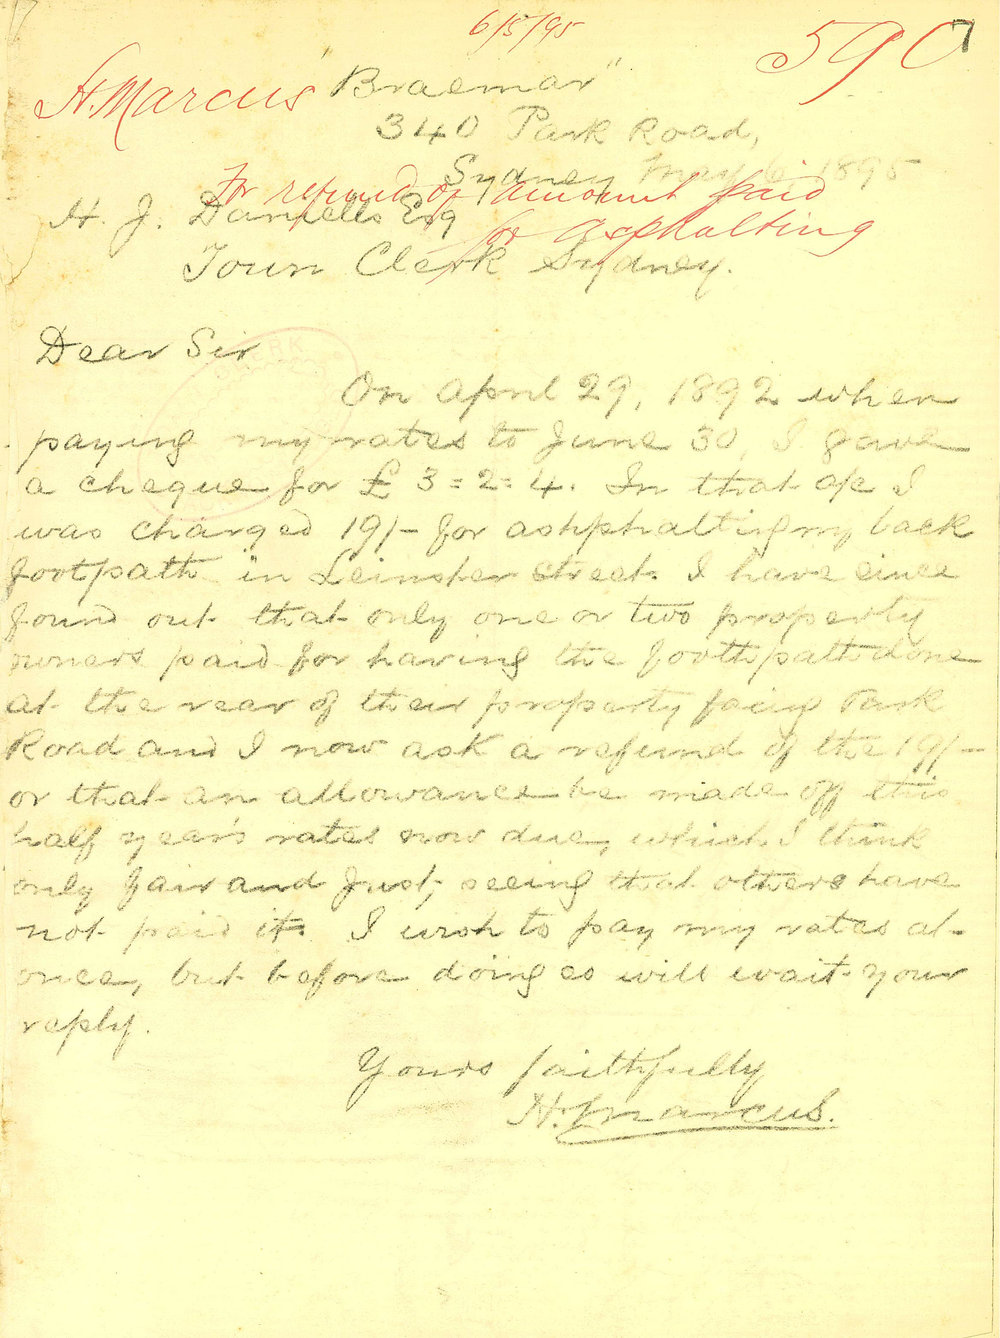 6/5/95
590
7
H. Marcus
"Braemar"
340 Park Road,
Sydney May 6 1895
For refund of amount paid
for asphalting
H. J. Daniells Esq
Town Clerk Sydney.
Dear Sir
On April 29, 1892 when
paying my rates to June 30, I gave
a cheque for £3=2=4. In that a/c I
was charged 19/- for ashphalting my back
footpath in Leinster street. I have since
found out that only one or two property
owners paid for having the footpath done
at the rear of their property facing Park
Road and I now ask a refund of the 19/-
or that an allowance be made off this
half year's rates now due, which I think
only fair and just, seeing that others have
not paid it. I wish to pay my rates at
once, but before doing so will wait your
reply.
Yours faithfully
H. Marcus.